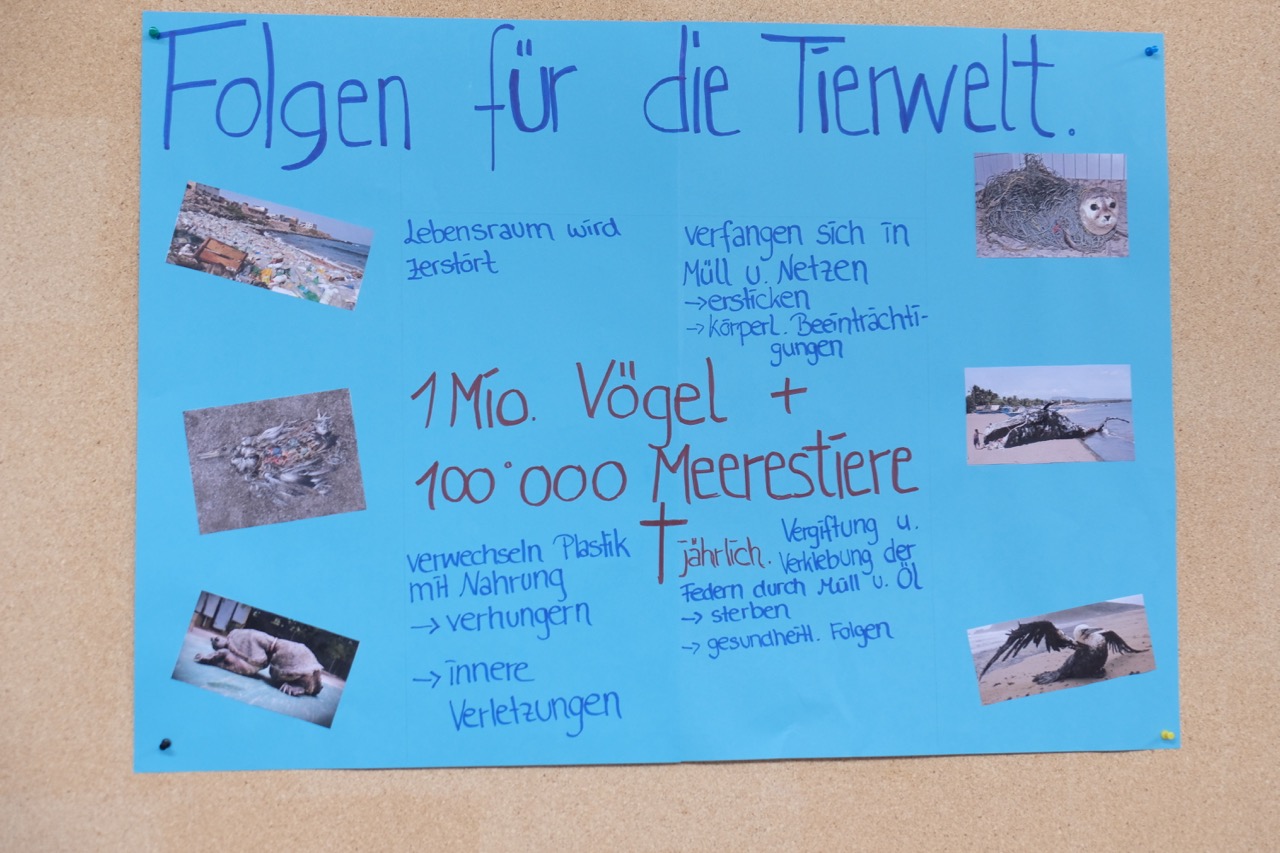 Folgen für die Tierwelt.
Lebensraum wird
zerstört
verfangen sich in
Müll u. Netzen
→ersticken
→körperl. Beeinträchti-
gungen
1 Mio. Vögel +
100'000 Meerestiere
† jährlich.
verwechseln Plastik
mit Nahrung
→ verhungern
→ innere
Verletzungen
Vergiftung u.
Verklebung der
Federn durch Müll u. Öl
→ sterben
→ gesundheitl. Folgen